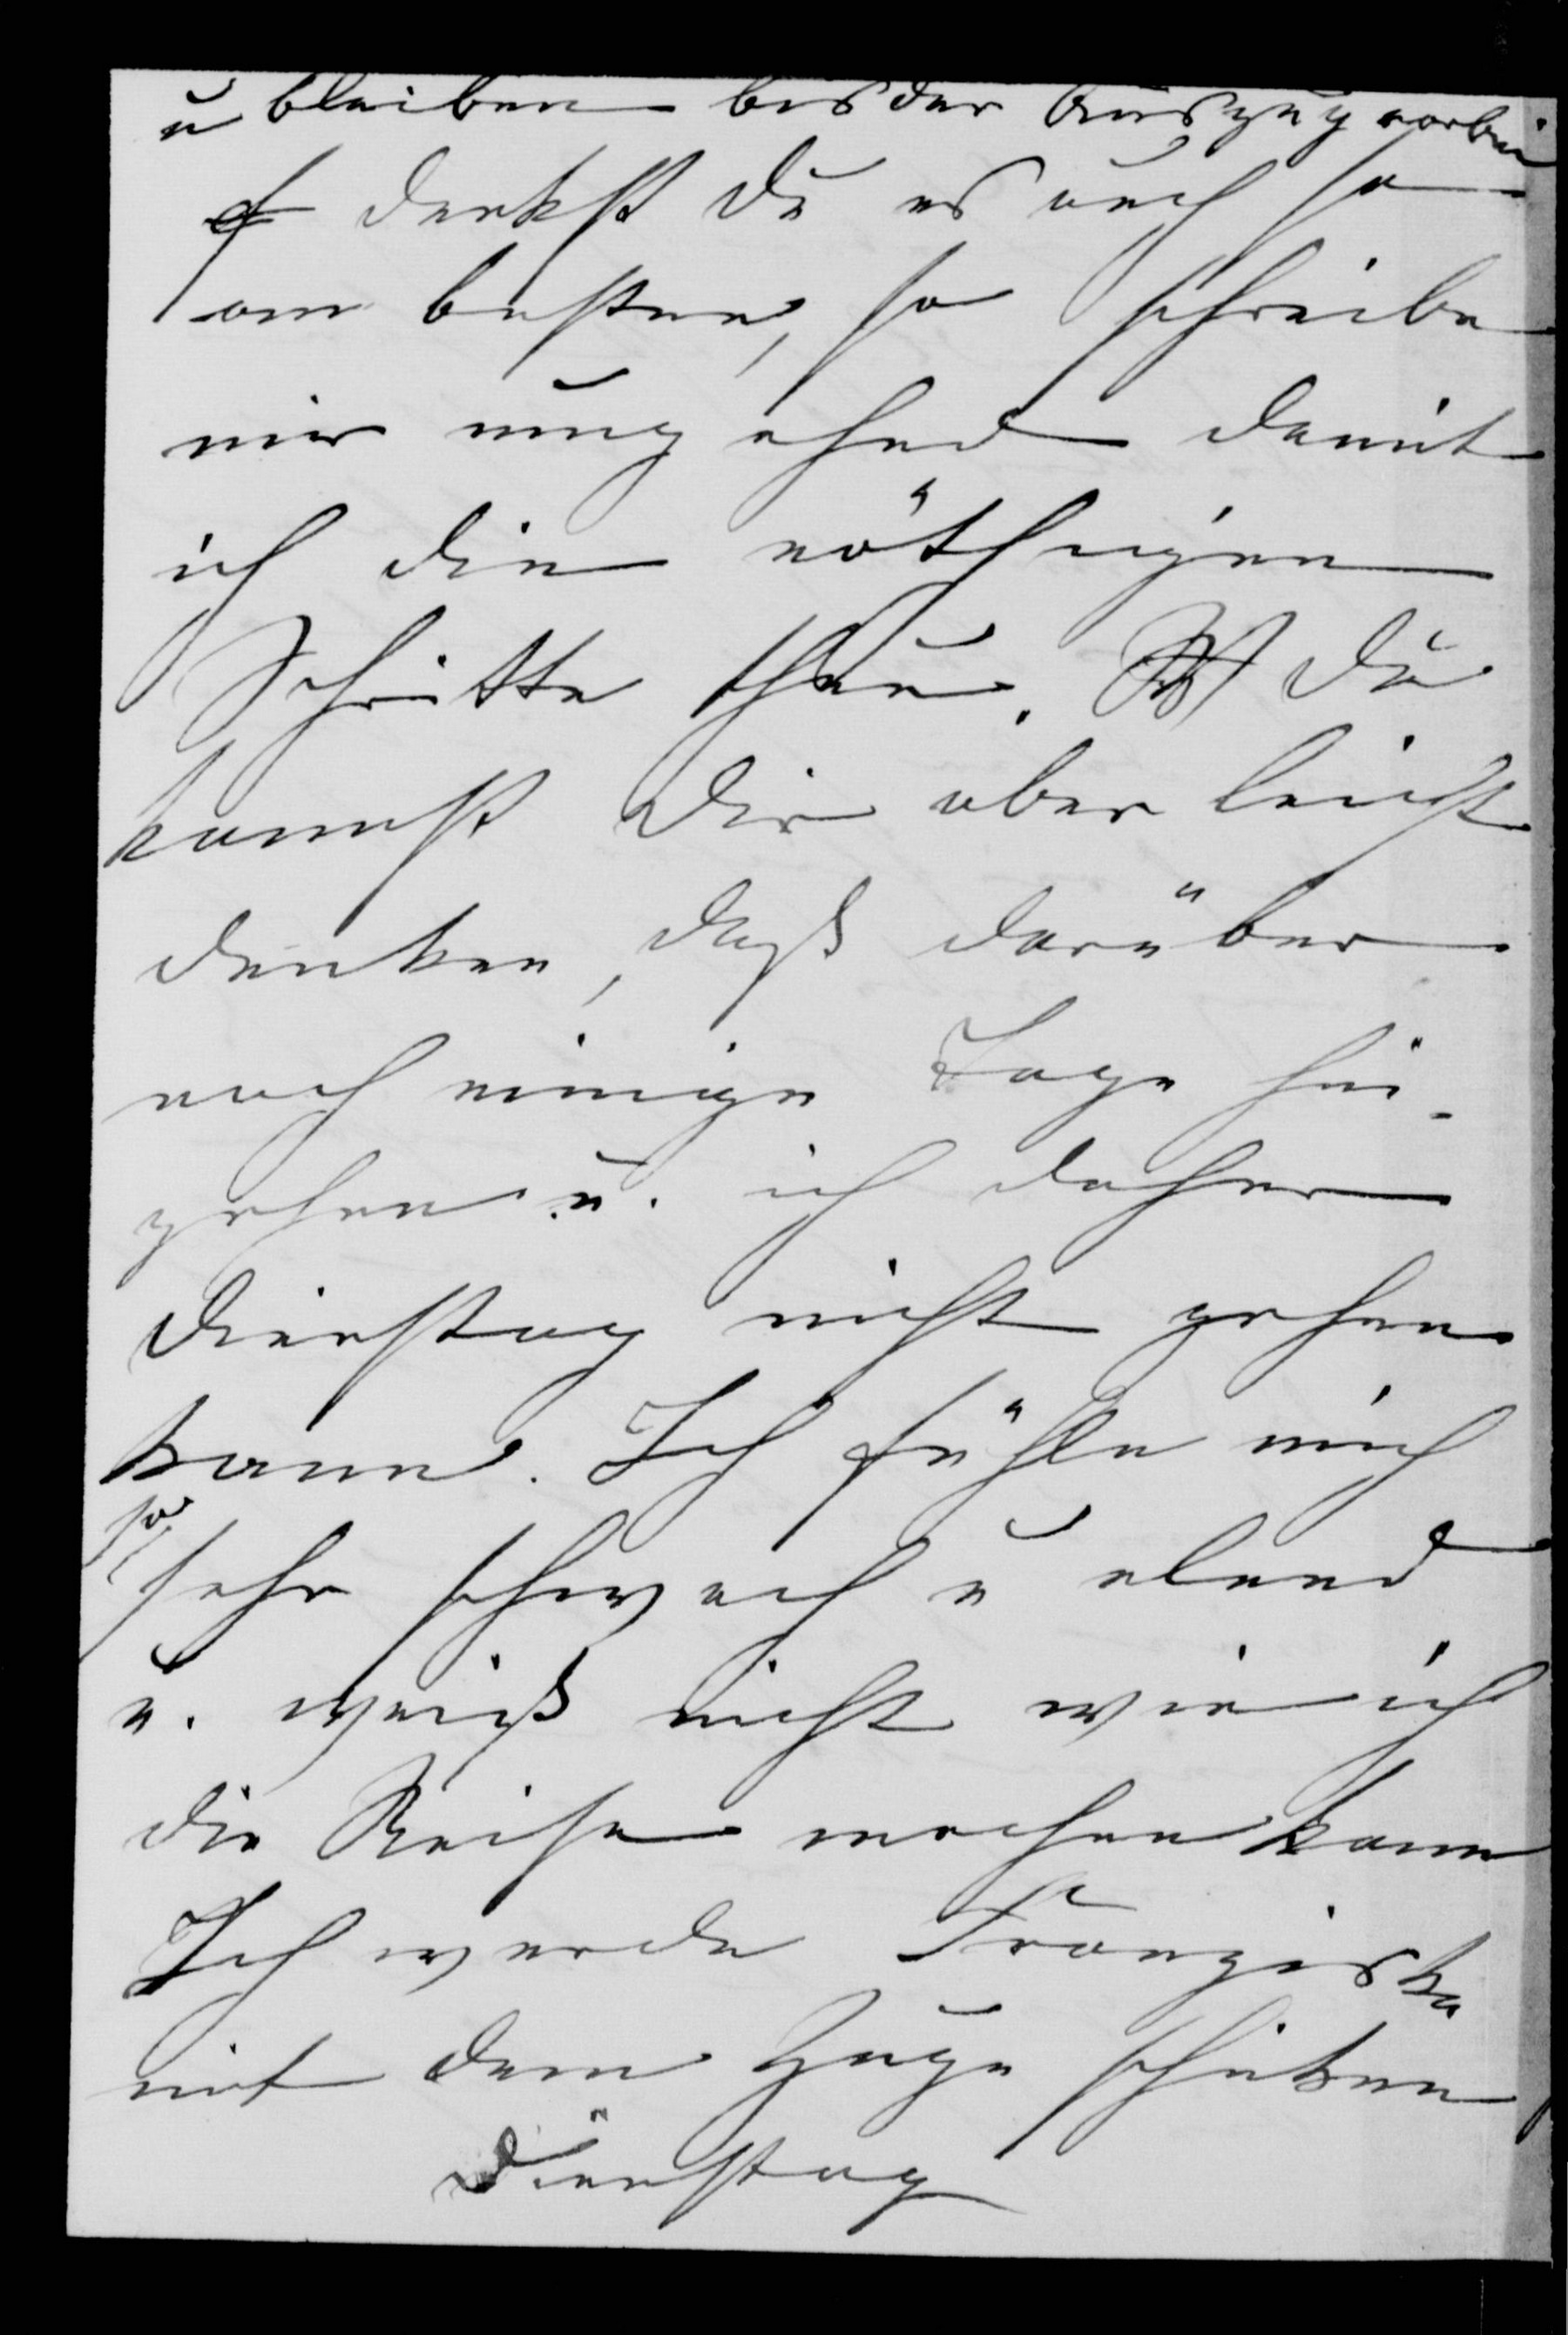 u bleiben bis der Auszug vorbei
denkst Du es auch so
am besten, so schreibe
mir umgehend damit
ich die nöthigen
Schritte thue. Du
kannst Dir aber leicht
denken, daß darüber
noch einige Tage hin-
gehen u. ich daher
Dienstag nicht gehen
kann. Ich fühle mich
so
sehr schwach u elend
u. weiß nicht wie ich
die Reise machen kann
Ich werde Franziska
mit dem Zuge schicken
Dienstag